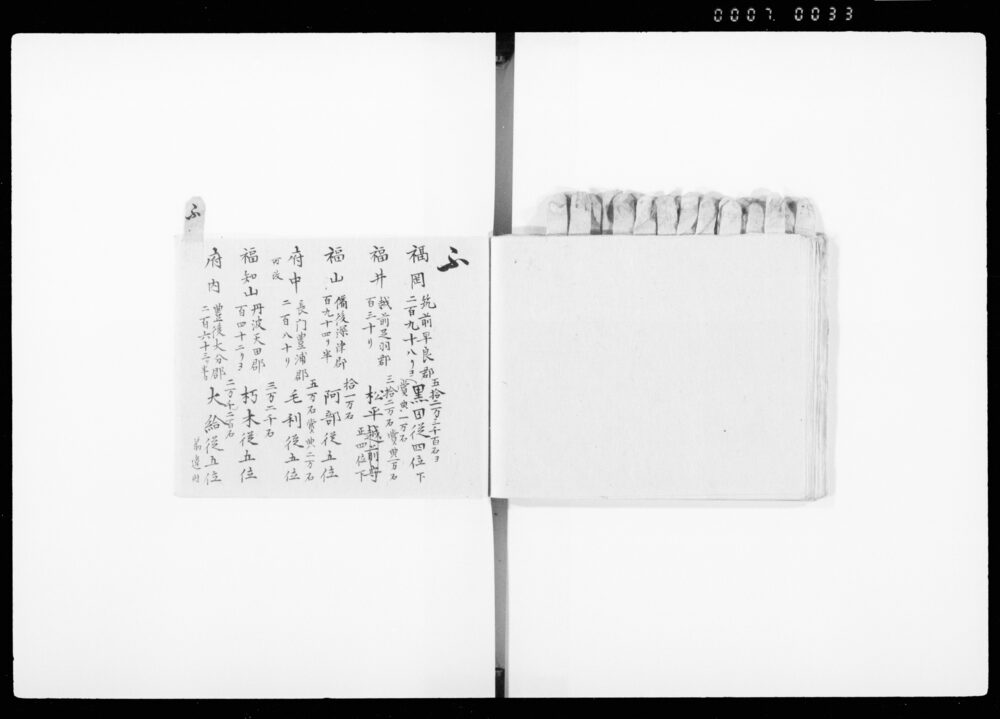 0007 0033
ふ
ふ
福岡
筑前早良郡
二百九十八リヨ
五拾二万三千百石ヨ
賞典一万石
黒田従四位下
福井
越前足羽郡
百三十リ
三拾二万石賞典一万石
松平越前守
正四位下
福山
備後深津郡
百九十四リ半
拾一万石
阿部従五位
府中
可改
長門豊浦郡
二百八十リ
五万石賞典二万石
毛利従五位
福知山
丹波天田郡
百四十二リヨ
三万二千石
朽木従五位
府内
豊後大分郡
二百六十三リ半
二万千二百石
大給従五位